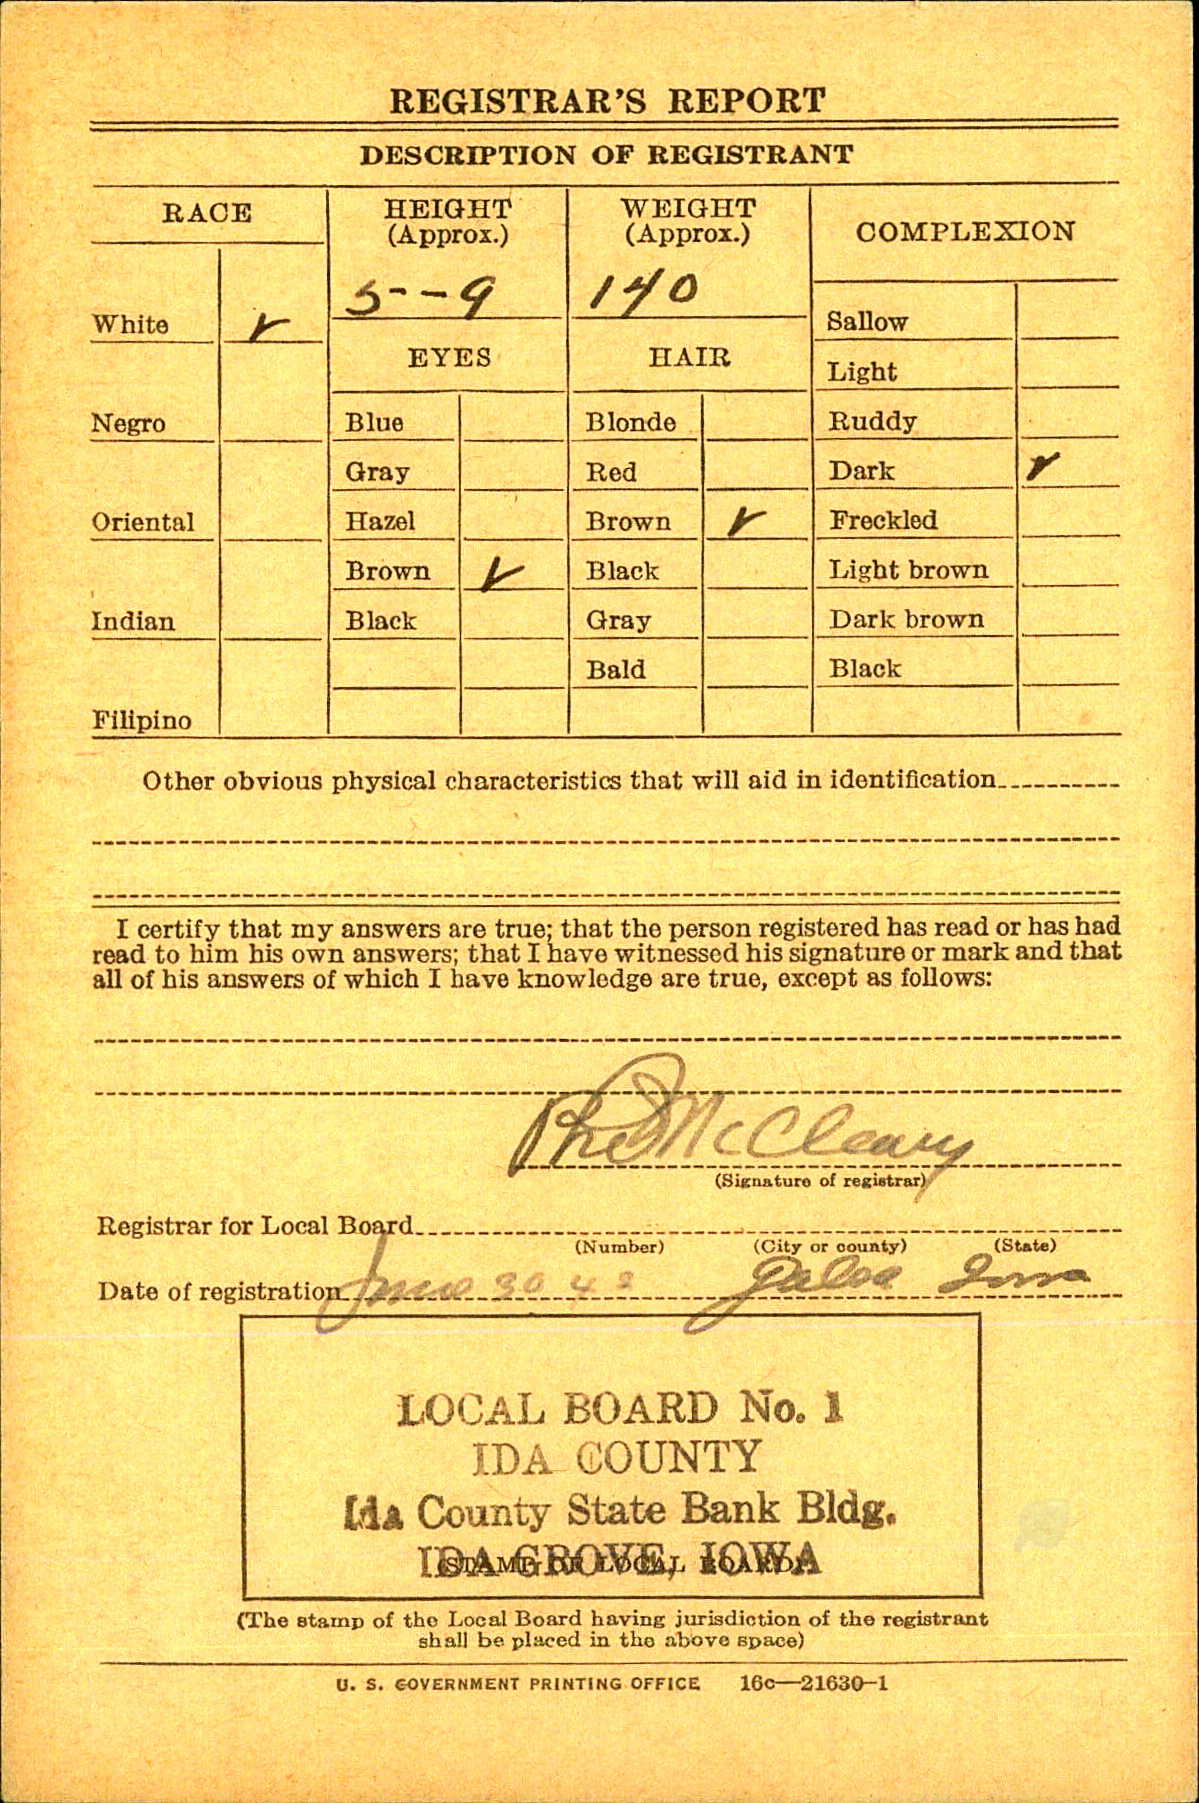 REGISTRAR'S REPORT
DESCRIPTION OF REGISTRANT
RACE
HEIGHT
(Approx.)
WEIGHT
(Approx.)
COMPLEXION
5--9
140
White ✓
Sallow
EYES
HAIR
Light
Negro
Blue
Blonde
Ruddy
Gray
Red
Dark ✓
Oriental
Hazel
Brown ✓
Freckled
Brown ✓
Black
Light brown
Indian
Black
Gray
Dark brown
Bald
Black
Filipino
Other obvious physical characteristics that will aid in identification
I certify that my answers are true; that the person registered has read or has had
read to him his own answers; that I have witnessed his signature or mark and that
all of his answers of which I have knowledge are true, except as follows:
McCleary
(Signature of registrar)
Registrar for Local Board
(Number) (City or county) (State)
Date of registration June 30 42 Galva Iowa
LOCAL BOARD No. 1
IDA COUNTY
Ida County State Bank Bldg.
IDA GROVE, IOWA
(STAMP OF LOCAL BOARD)
(The stamp of the Local Board having jurisdiction of the registrant
shall be placed in the above space)
U. S. GOVERNMENT PRINTING OFFICE 16c—21630-1